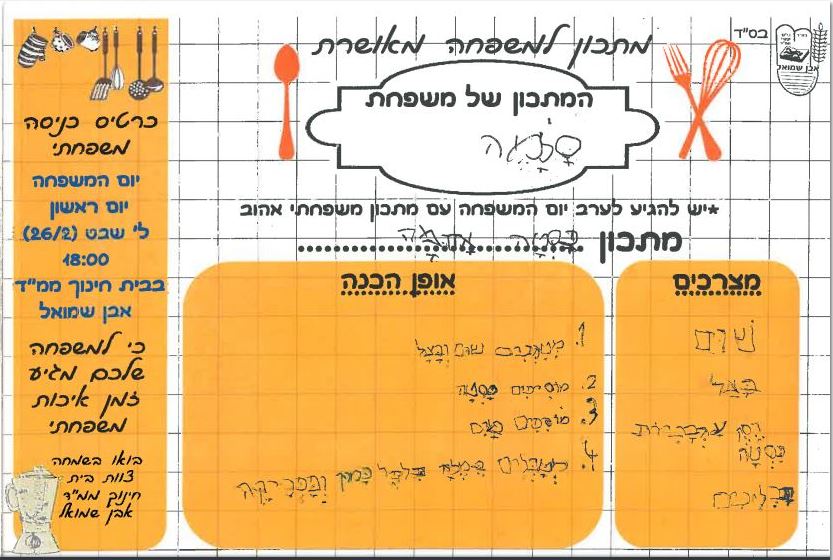 בס"ד
אבן שמואל
מתכון למשפחה מאושרת
המתכון של משפחת
סלמה
*יש להגיע לערב יום המשפחה עם מתכון משפחתי אהוב
מתכון פסטה אדמה
מצרכים
שום
בצל
רסק עגבניות
פסטה
אופן הכנה
1. מטגנים שום ובצל
2. מוסיפים פסטה
3. מוסיפים מים
4. מתבלים במלח פלפל כמון ופפריקה
כרטיס כניסה
משפחתי
יום המשפחה
יום ראשון
ל' שבט (26/2)
18:00
בבית חינוך ממ"ד
אבן שמואל
כי למשפחה
שלכם מגיע
זמן איכות
משפחתי
בואו בשמחה
צוות בית
חינוך ממ"ד
אבן שמואל